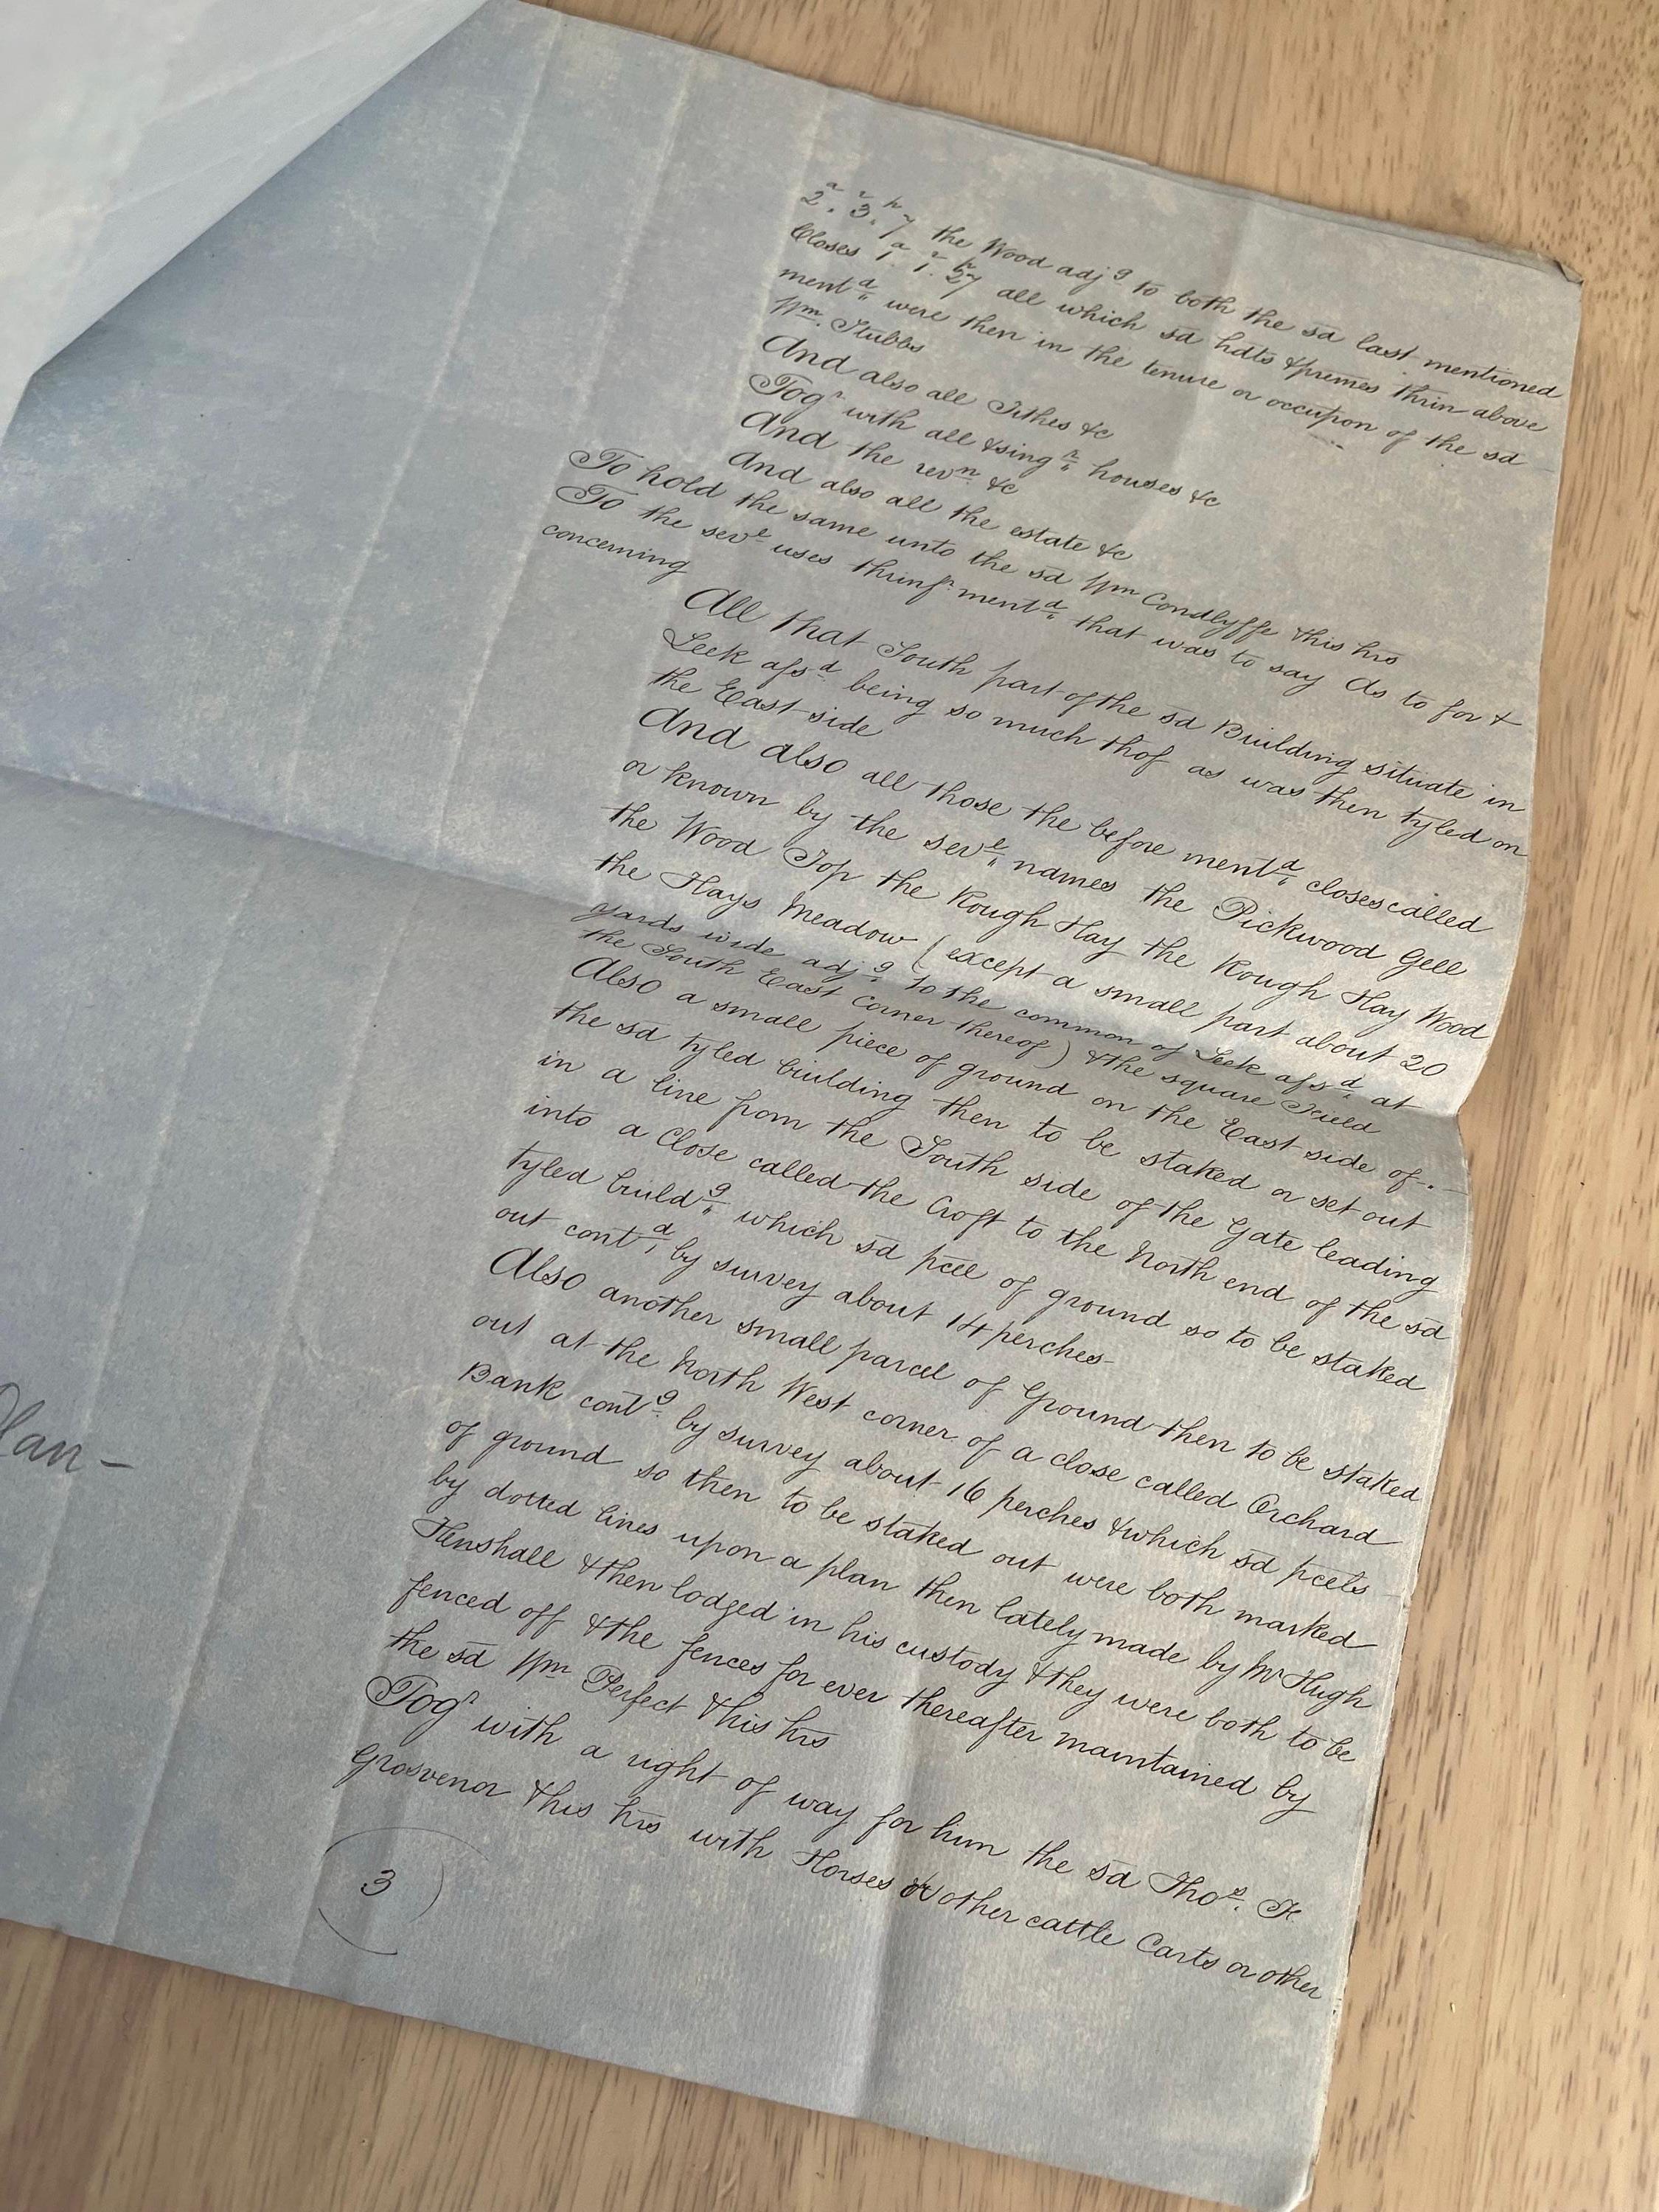 2.a 3.r 7p the Wood adjg to both the sd last mentioned
Closes 1.a 1.r 27p all which sd hdts & premes thrin above
mentd were then in the tenure or occupon of the sd
Wm. Stubbs
And also all Tithes &c
Togr with all & singr houses &c
And the revn &c
And also all the estate &c
To hold the same unto the sd Wm Condlyffe & his hrs
To the sevl uses thrinfr mentd that was to say As to for &
concerning
All that South part of the sd Building situate in
Leek afsd being so much thof as was then tyled on
the East side
And also all those the before mentd closes called
or known by the sevl names the Pickwood Gell
the Wood Top the Rough Hay the Rough Hay Wood
the Hays Meadow (except a small part about 20
yards wide adjg to the common of Leek afsd at
the South East Corner thereof) & the square Field
Also a small piece of ground on the East side of
the sd tyled building then to be staked or set out
in a line from the South side of the Gate leading
into a Close called the Croft to the North end of the sd
tyled buildg which sd pcel of ground so to be staked
out contd by survey about 14 perches
Also another small parcel of Ground then to be staked
out at the North West corner of a close called Orchard
Bank contg by survey about 16 perches & which sd pcels
of ground so then to be staked out were both marked
by dotted lines upon a plan then lately made by Mr Hugh
Henshall & then lodged in his custody & they were both to be
fenced off & the fences for ever thereafter maintained by
the sd Wm Perfect & his hrs
Togr with a right of way for him the sd Thos. Fe
Grosvenor & his hrs with Horses or other cattle Carts or other
3